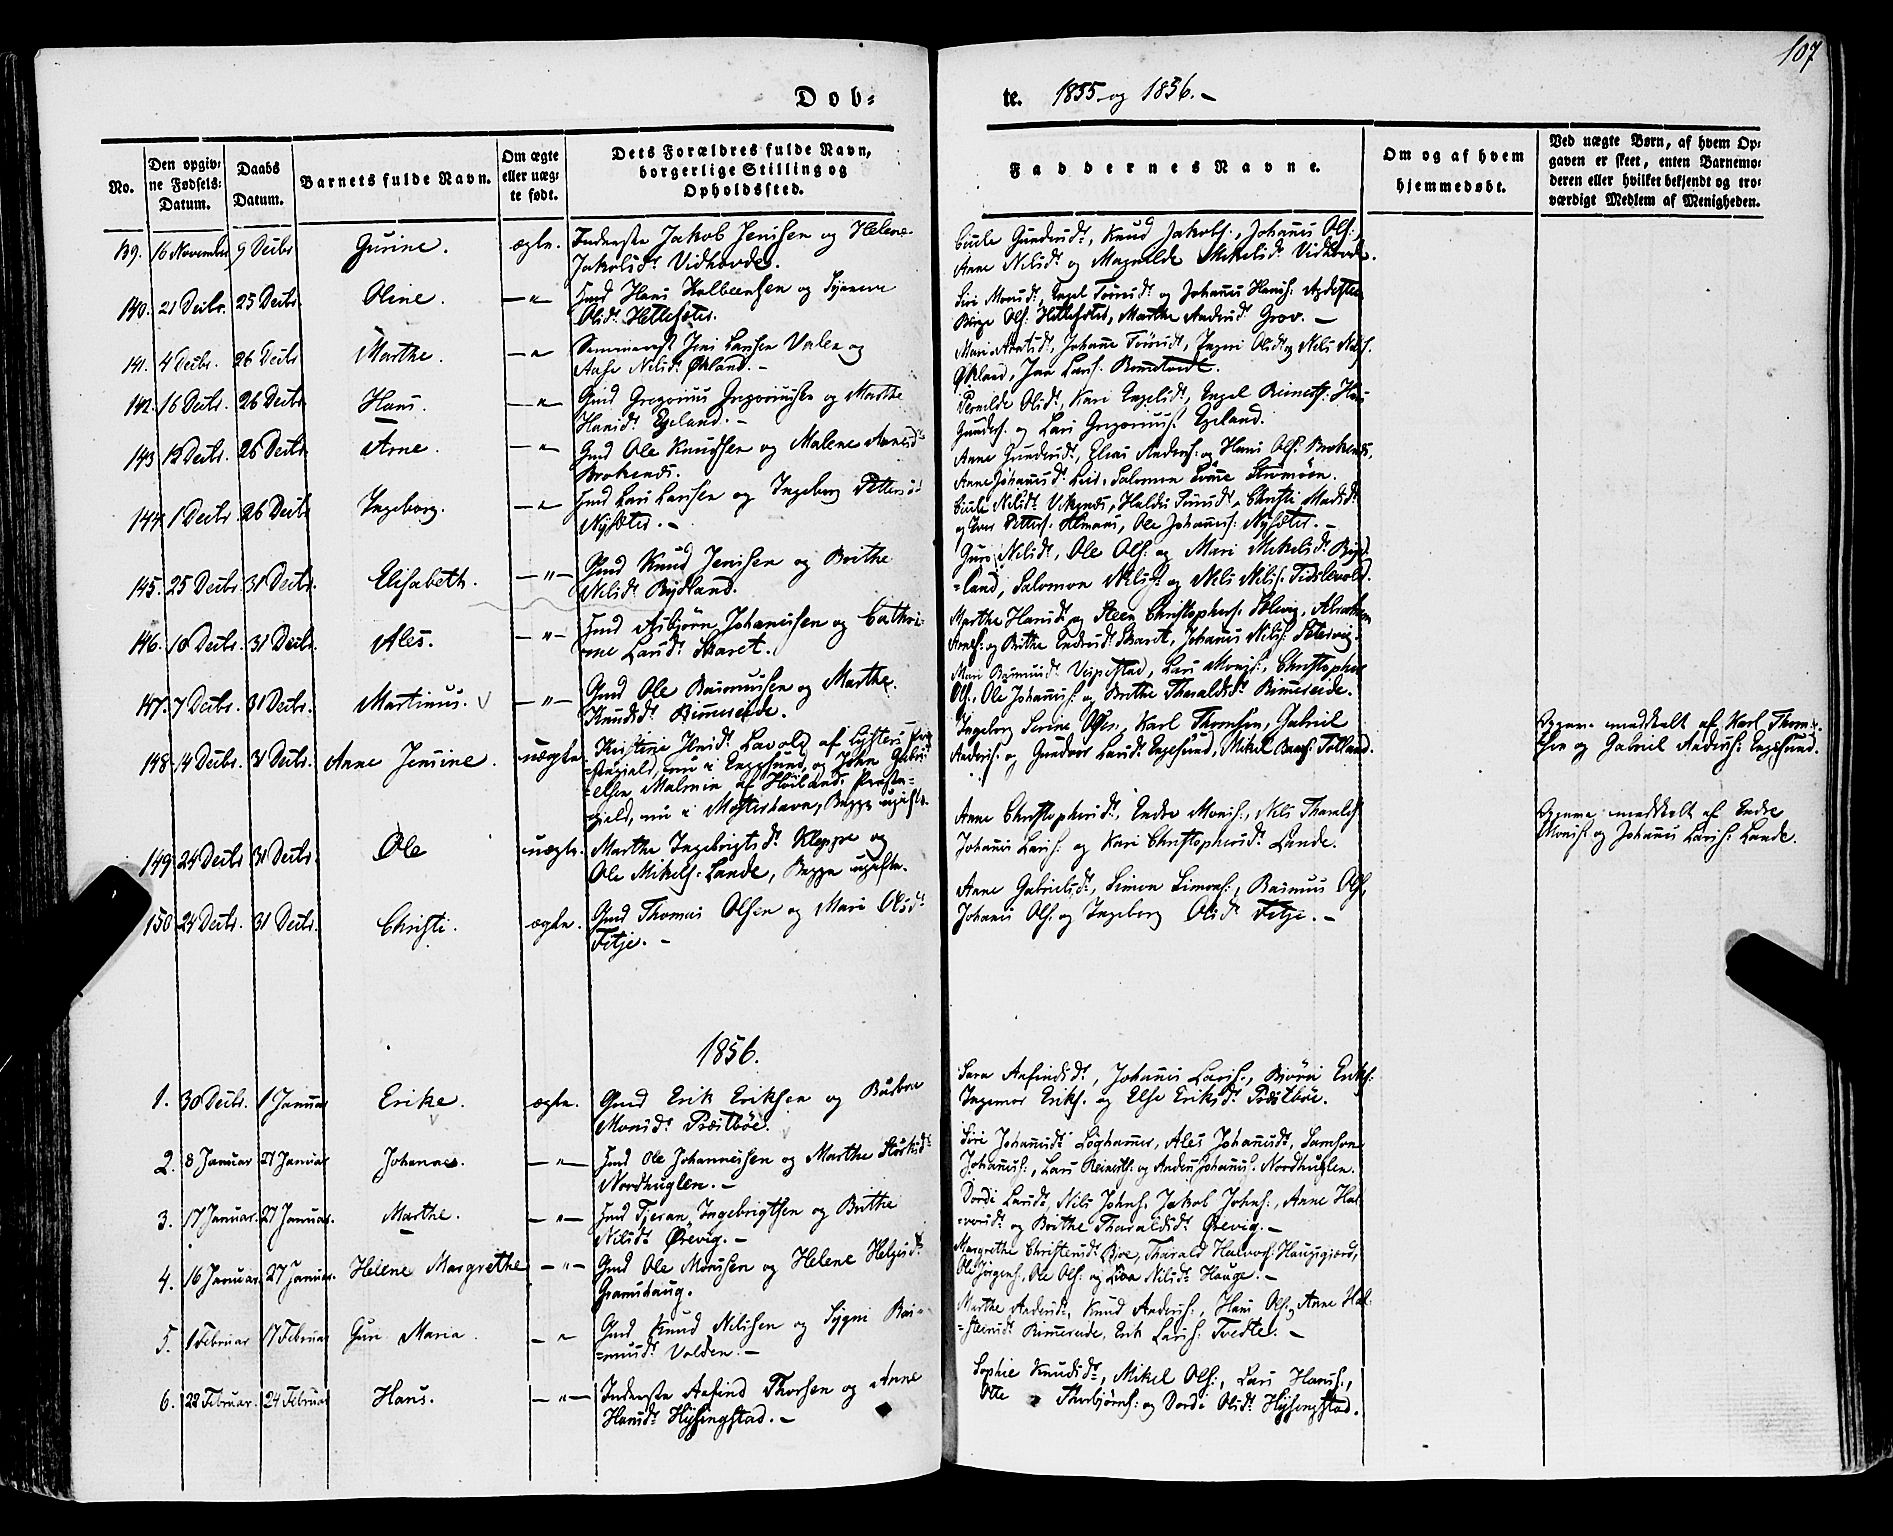 107
Dob-
te. 1855 og 1856. -
No.
Den opgiv-
ne Fødsels-
Datum.
Daabs
Datum.
Barnets fulde Navn.
Om ægte
eller uæg-
te født.
Dets Forældres fulde Navn,
borgerlige Stilling og
Opholdssted.
Faddernes Navne.
Om og af hvem
hjemmedøbt.
Ved uægte Børn, af hvem Op-
gaven er skeet, enten Barnemo-
deren eller hvilket bekjendt og tro-
værdigt Medlem af Menigheden.
139. 16 November 9 Decbr Gurine. ægte. Inderste Jakob Jensen og Helene
Jakobsdr Vidhovde.
Gundersdr, Knud Jakobs., Johannes Ols.,
Anne Nilsdr og Magnilde Mikelsdr Vidhovde.
140. 21 Decbr. 25 Decbr. Oline. -"- Gmd Hans og
Olsdr Hettesæter.
Siri Monsdr, Engel Tørrisdr og Johannes Hans:
Børge Ols: Hettesæter, Marthe Andersdr Grov. -
141. 4 Decbr. 26 Decbr Marthe. -"- Jens Larsen Valen og
Aase Nilsdr Økland. -
Mari Johanne Tørrisdr, Ingeri Olsdr og Nils Nils.
Økland, Lars:
142. 16 Decbr. 26 Decbr. Hans. -"- Gmd Gregorius Gregoriussen og Marthe
Hansdr Egeland. -
Pernilde Olsdr, Kari Engelsdr, Engel Reinerts: Hans
Gunders. og Lars Gregorius: Egeland.
143 12 Decbr. 26 Decbr. Arne. -"- Gmd Ole Knudsen og Malene Arnesdr
Brokenæs.
Anne Gundersdr, Elias Anders: og Hans Ols: Brokenæs,
Anne Johannesdr Salomon
144. 1 Decbr. 26 Decbr. Ingeborg. -"- Gmd Lars Larsen og Ingeborg Pettersdr
Nysæter. -
Nilsdr Vikenæs, Tørrisdr, Christi Madsdr
og Iver Petters: Ole Johannes: Nysæter. -
145. 25 Decbr. 31 Decbr. Elisabeth. -"- Gmd Knud Jensen og Brithe
Nilsdr Rydland.
Guro Nilsdr, Ole Ols: og Mari Mikelsdr Ryd-
=land, Salomon Nils: og Nils Nils: Tidslevold.
146. 10 Decbr. 31 Decbr. Ales. -"- Gmd Asbjørn Johannesen og Cathri-
ne Larsdr Skaret.
Marthe Hansdr og Steen Christophers. Abraham
Arnes: og Brithe Endresdr Skaret, Johannes Nils:
147. 7 Decbr. 31 Decbr. Martinus. -"- Gmd Ole Rasmussen og Marthe
Knudsdr Rimereide.
Mari Rasmusdr Vespestad, Lars Mons:, Christopher
Ols., Ole Johannes: og Brithe Tharaldsdr Rimereide.
148. 14 Decbr. 31 Decbr. Anne Jensine. uægte. Kristine Jensdr af Lysters Præ-
stegjeld, nu i Engesund, og John Gabri-
elsen Malmin af Høilands Præste-
gjeld, nu i Mosterhavn, Begge ugifte.
Ingeborg Serine Karl Thomsen, Gabriel
Anders: og Gundvor Larsdr Engesund, Mikel Tolland.
Opgave meddeelt af Karl Thom-
sen og Gabriel Anders: Engesund.
149. 24 Decbr 31 Decbr. Ole uægte. Marthe Ingebrigtsdr Kleppe og
Ole Mikels: Lande, Begge ugifte.
Anne Christophersdr, Endre Mons:, Nils Tharalds:
Johannes Lars: og Kari Christophersdr Lande.
Opgave meddeelt af Endre
Mons: og Johannes Lars: Lande.
150 24 Decbr. 31 Decbr. Christi. ægte. Gmd Thomas Olsen og Mari Olsdr
Fitje. -
Anne Gabrielsdr, Simon Simons:, Rasmus Ols.,
Johannes Ols. og Ingeborg Olsdr Fitje. -
1856.
1. 30 Decbr. 1 Januar Erike. ægte. Gmd Erik Eriksen og Barbra
Monsdr Præstbøe.
Sara Aafindsdr, Johannes Lars:, Bjørn Eriks:
Ingemor Eriks. og Else Eriksdr Præstbøe.
2. 8 Januar 27 Januar Johannes. -"- Gmd Ole Johannesen og Marthe Størksdr
Nordhuglen. -
Siri Johannesdr Løghammer, Ales Johannesdr, Samson
Johannes:, Lars Reinerts: og Anders Johannes: Nordhuglen.
3. 17 Januar. 27 Januar. Marthe. -"- Gmd Tjeran Ingebrigtsen og Brithe
Nilsdr Ørevig. -
Dordi Larsdr, Nils Johns. Jakob Johns:, Anne Hal-
=vorsdr og Brithe Tharaldsdr Ørevig. -
4. 16 Januar. 27 Januar. Helene Margrethe -"- Gmd Ole Monsen og Helene Helgesdr
Gramshaug.
Margrethe Christensdr Boe, Tharald Halvors: Hauggjerd,
Ole Jørgens., Ole Ols: og Nilsdr Hauge. -
5. 1 Februar 17 Februar Guri Maria. -"- Gmd Knud Nilssen og Sygni Ras-
=musdr Valden. -
Marthe Andersdr, Knud Anders:, Hans Ols:, Anne Hal-
=steinsdr Rimereide, Erik Lars: Tvedte. -
6. 22 Februar. 24 Februar Hans. -"- Inderste Aafind Thorsen og Anne
Hansdr Hysingstad. -
Sophie Knudsdr, Mikel Ols:, Lars Hans:,
Otte Thorbjørns: og Dordi Olsdr Hysingstad.